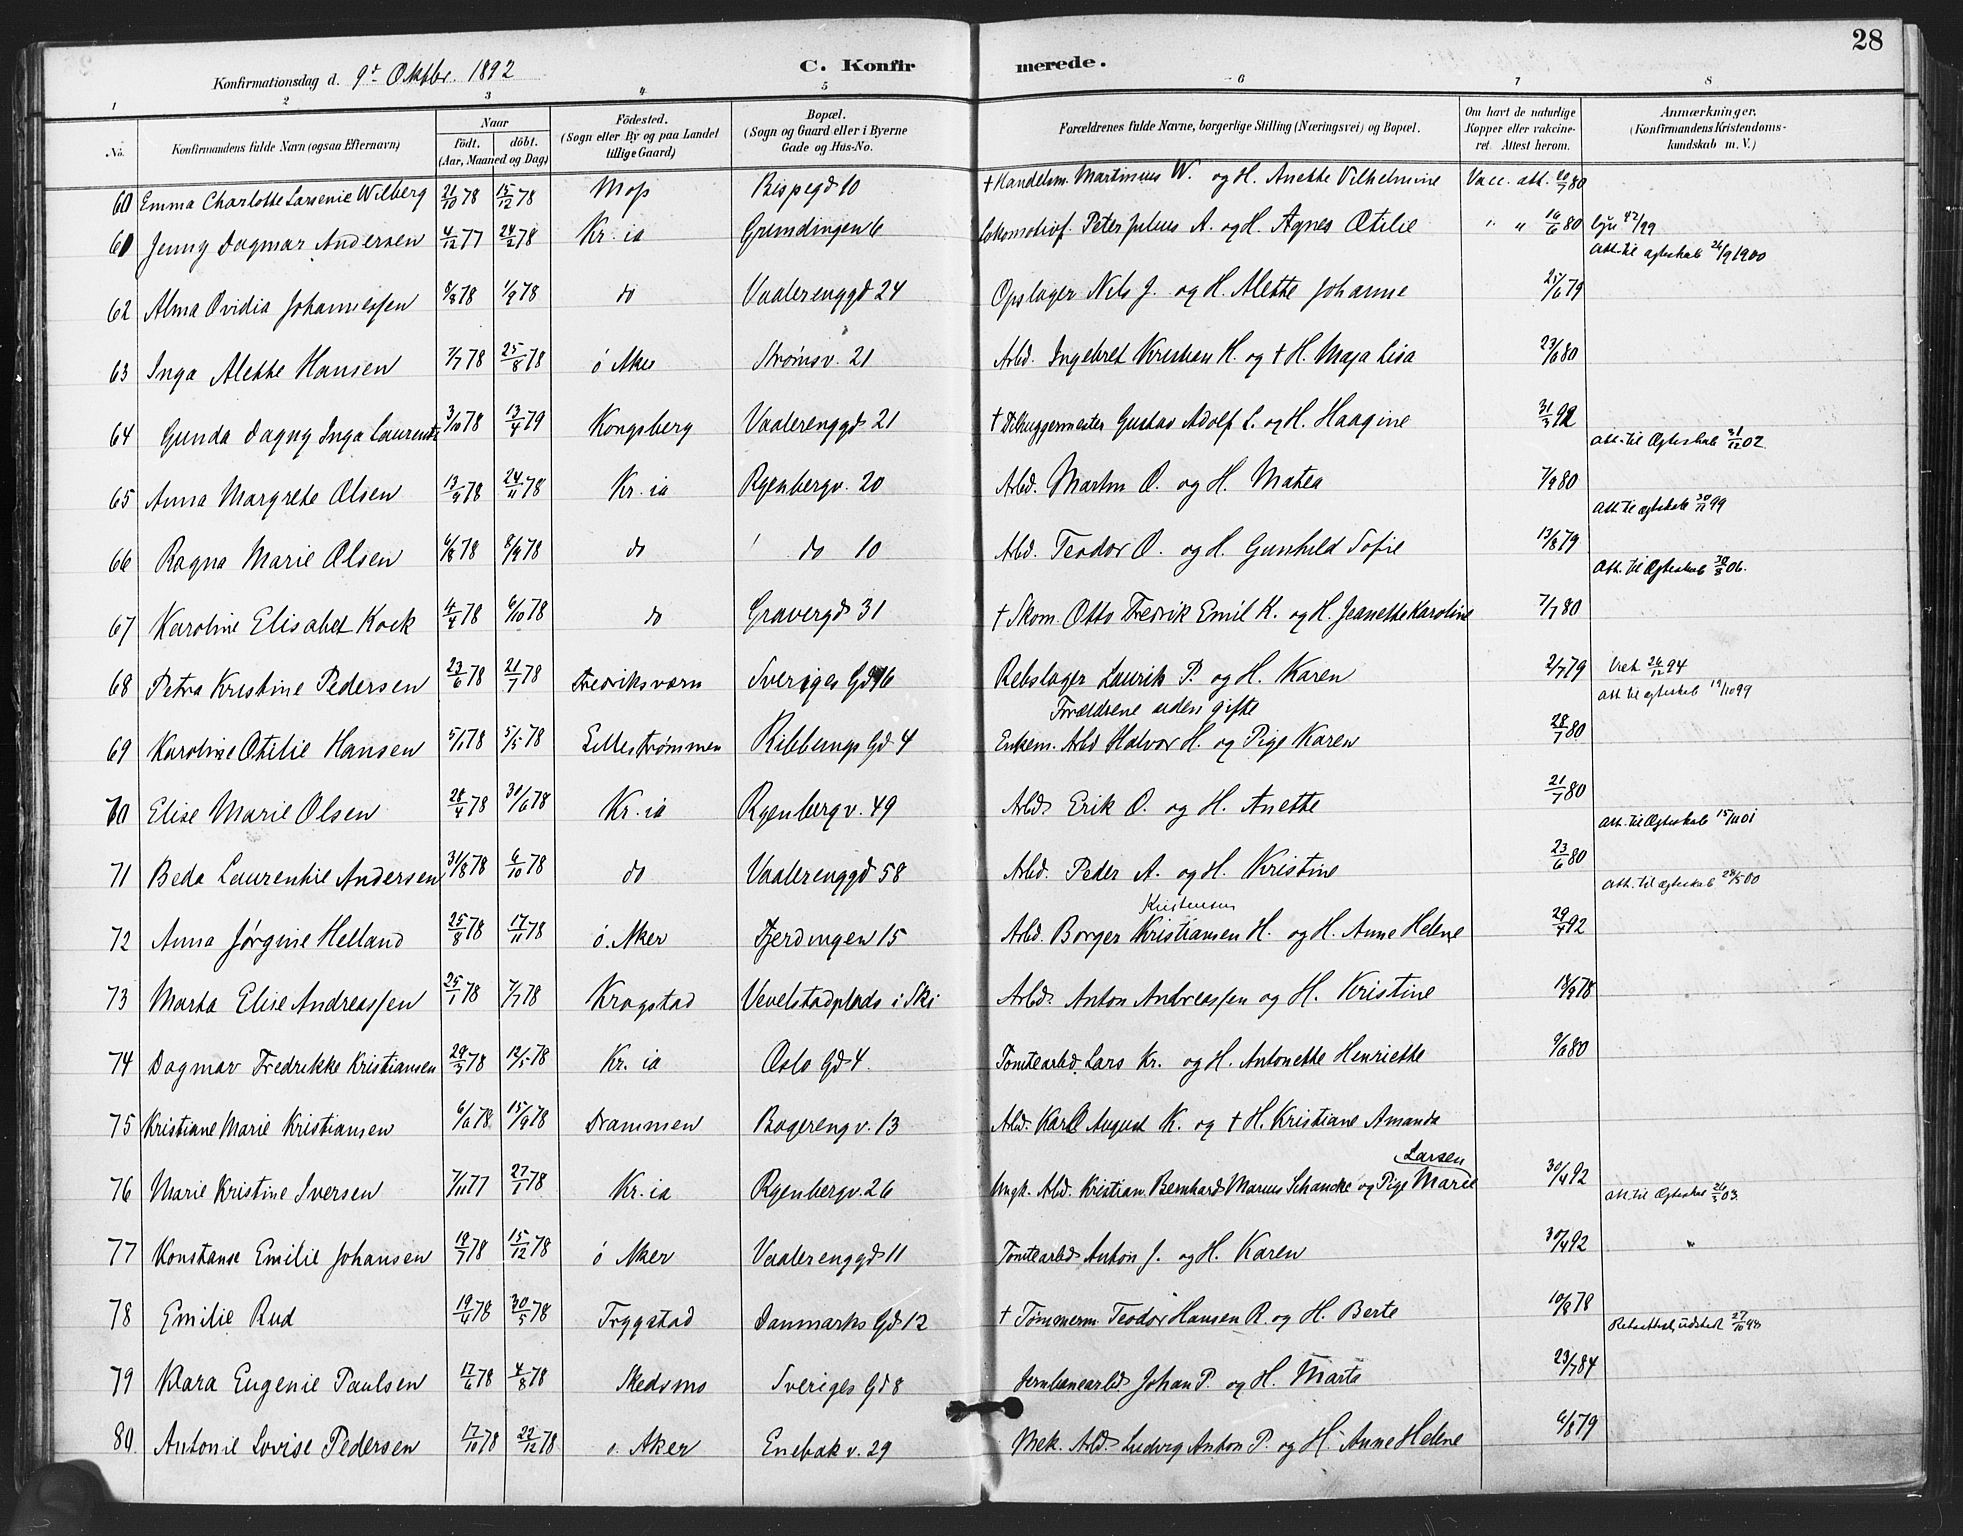 28
Konfirmationsdag d. 9de Oktbr. 1892
C. Konfirmerede.
1 2 3 4 5 6 7 8
No. Konfirmandens fulde Navn (ogsaa Efternavn) Naar födt. döbt. (Aar, Maaned og Dag) Födested. (Sogn eller By og paa Landet tillige Gaard) Bopæl. (Sogn og Gaard eller i Byerne Gade og Hus-No. Forældrenes fulde Navne, borgerlige Stilling (Næringsvei) og Bopæl. Om havt de naturlige Kopper eller vaccineret. Attest herom. Anmærkninger. (Konfirmandens Kristendomskundskab m. V.)
60 Emma Charlotte Larsenie Wilberg 21/10 78 15/12 78 Moss Bispegd 10 † Handelsm. Martinius W. og H. Anette Vilhelmine Vacc. att. 20/7 80
61 Jenny Dagmar Andersen 4/12 77 24/2 78 Kr.ia Grændingen 6 Lokomotivf. Peter Julius A. og H. Agnes Otilie " " 16/6 80 42/99
Att. til ægteskab 24/9 1900
62 Alma Ovidia Johannessen 8/3 78 1/9 78 do Vaalerenggd 24 Opslager Nils J. og H. Alette Johanne 25/6 79
63 Inga Alette Hansen 7/7 78 25/8 78 ö Aker Strømsv. 21 Arbd. Ingebret Kristian H. og † H. Maja Lisa 23/6 80
64 Gunda Dagny Inga Laurentz 3/10 78 13/4 79 Kongsberg Vaalerenggd 21 † Gustav Adolf L. og H. Haagine 31/3 92
Att. til Ægteskab 31/12 02
65 Anna Margrete Olsen 13/9 78 24/11 78 Kr.ia Ryenbergv. 20 Arbd. Martin O. og H. Matea 7/9 80
Att. til ægteskab 30/11 99
66 Ragna Marie Olsen 6/8 78 8/9 78 do do 10 Arbd. Teodor O. og H. Gunhild Sofie 13/8 79
Att. til Ægteskab 30/3 06.
67 Karoline Elisabet Kock 4/4 78 6/10 78 do Gravergd 31 † Skom. Otto Fredrik Emil K. og H. Jeanette Karoline 7/7 80
68 Petra Kristine Pedersen 23/6 78 21/7 78 Fredriksværn Sveriges Gd 16 Rebslager Laurits P. og H. Karen 2/7 79 26/12 94
Att. til ægteskab 19/10 99
Forældrene siden gifte
69 Karoline Otilie Hansen 5/1 78 5/5 78 Lillestrømmen Ribbungs Gd 4 Enkem. Arbd Halvor H. og Pige Karen 28/7 80
70 Elise Marie Olsen 28/4 78 30/6 78 Kr.ia Ryenbergv. 49 Arbd. Erik O. og H. Anette 21/7 80
Att. til Ægteskab 15/11 01
71 Beda Laurentie Andersen 31/8 78 6/10 78 do Vaalerenggd 58 Arbd. Peder A. og H. Kristine 23/6 80
Att. til ægteskab 28/5 00
Kristensen
72 Anna Jørgine Helland 25/8 78 17/11 78 ö. Aker Fjerdingen 15 Arbd. Borger Kristiansen H. og H. Anne Helene 29/4 92
73 Marta Elise Andreassen 25/1 78 7/7 78 Kragstad Vevelstadplads i Ski Arbd. Anton Andreassen og H. Kristine 18/9 78
74 Dagmar Fredrikke Kristiansen 29/3 78 12/5 78 Kr.ia Oslo Gd 4. Tomtearbd. Lars Kr. og H. Antonette Henriette 9/6 80
75 Kristiane Marie Kristiansen 6/6 78 15/9 78 Drammen Bogerengv. 13 Arbd. Karl August K. og † H. Kristiane Amanda
Larsen
76 Marie Kristine Iversen 7/11 77 27/1 78 Kr.ia Ryenbergv. 26 Ungk. Arbd. Kristian Bernhard Marius Schancke og Pige Marie 30/4 92
Att. til Ægteskab 26/3 03.
77 Konstanse Emilie Johansen 19/7 78 15/12 78 ö Aker Vaalerenggd 11 Tomtearbd. Anton J. og H. Karen 30/4 92 "
78 Emilie Rud 19/4 78 30/5 78 Trygstad Danmarks Gd 12 † Tømmerm. Teodor Hansen R. og H. Berte 10/8 78
79 Klara Eugenie Paulsen 17/6 78 4/8 78 Skedsmo Sveriges Gd 8 Jernbanearbd. Johan P. og H. Marta 23/7 84
80 Antonie Lovise Pedersen 17/10 78 22/12 78 ö. Aker Enebakv. 29 Mek. Arbd. Ludvig Anton P. og H. Anne Helene 6/8 79